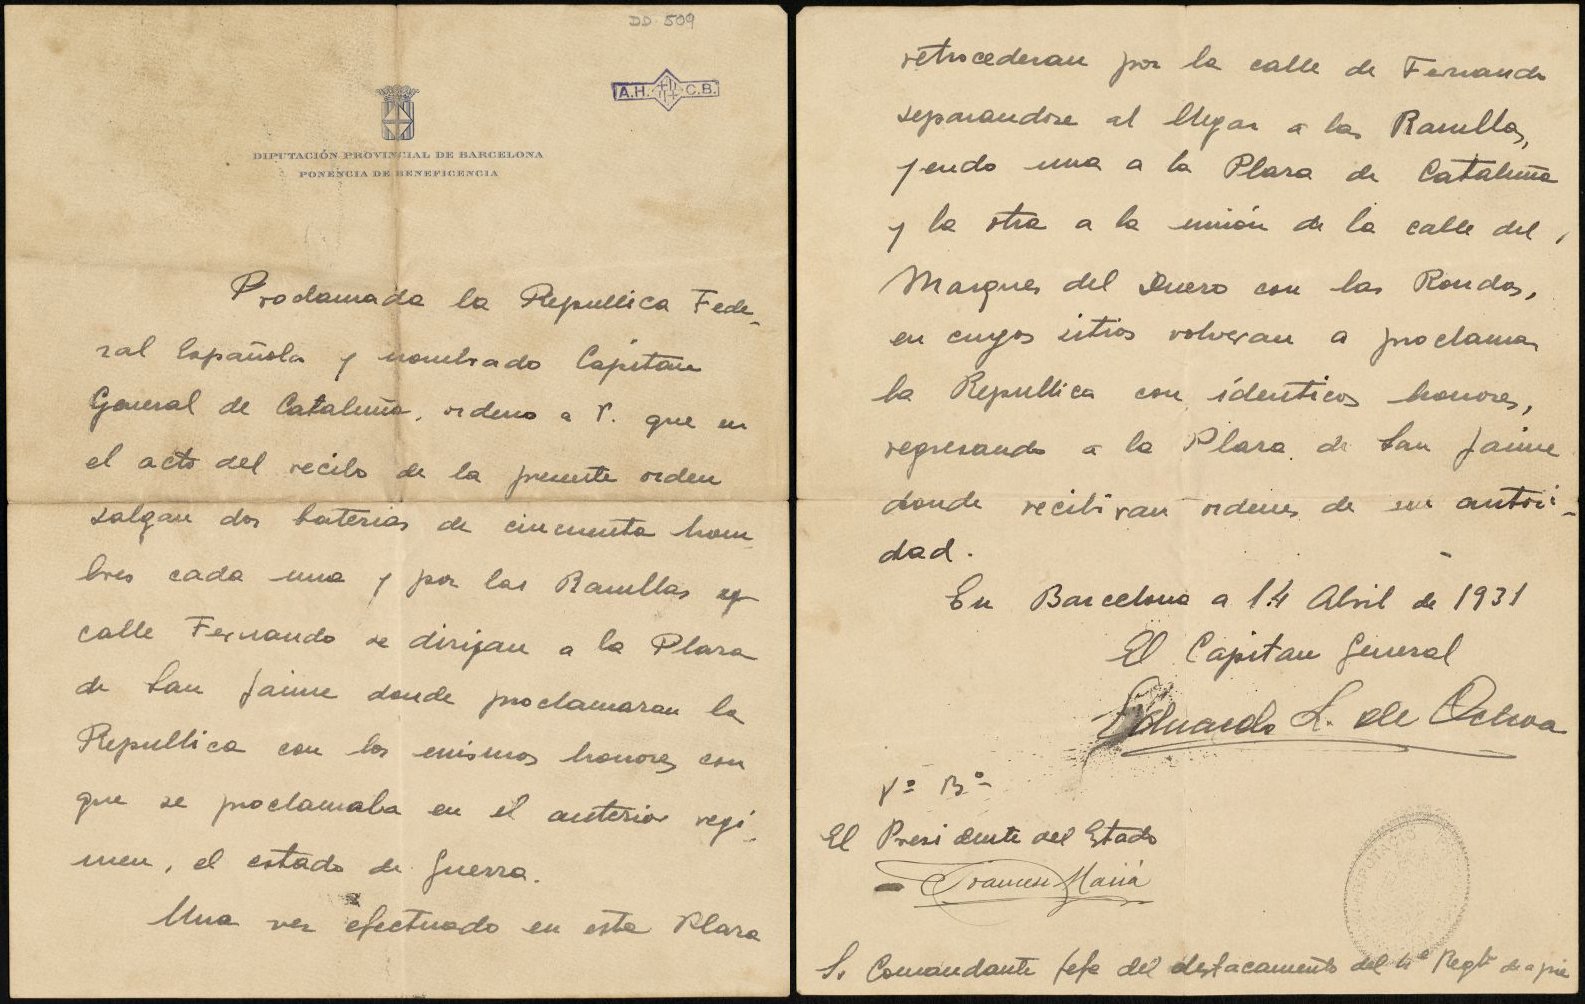 DD 509
A.H. C.B.
DIPUTACIÓN PROVINCIAL DE BARCELONA
PONENCIA DE BENEFICENCIA
Proclamada la Republica Fede-
ral Española y nombrado Capitan
General de Cataluña, ordeno a V. que en
el acto del recibo de la presente orden
salgan dos baterias de cincuenta hom-
bres cada una y por las Ramblas y
calle Fernando se dirijan a la Plaza
de San Jaime donde proclamaran la
Republica con los mismos honores con
que se proclamaba en el anterior regi-
men, el estado de guerra.
Una vez efectuado en esta Plaza
retrocederan por la calle de Fernando
separandose al llegar a las Ramblas,
yendo una a la Plaza de Cataluña
y la otra a la unión de la calle del
Marques del Duero con las Rondas,
en cuyos sitios volveran a proclamar
la Republica con identicos honores,
regresando a la Plaza de San Jaime
donde recibiran ordenes de mi autori-
dad.
En Barcelona a 14 Abril de 1931
El Capitan General
Eduardo L. de Ochoa
Vº Bº
El Presidente del Estado
Francesc Macià
Sr Comandante Jefe del destacamento del 4º Regto de a pie